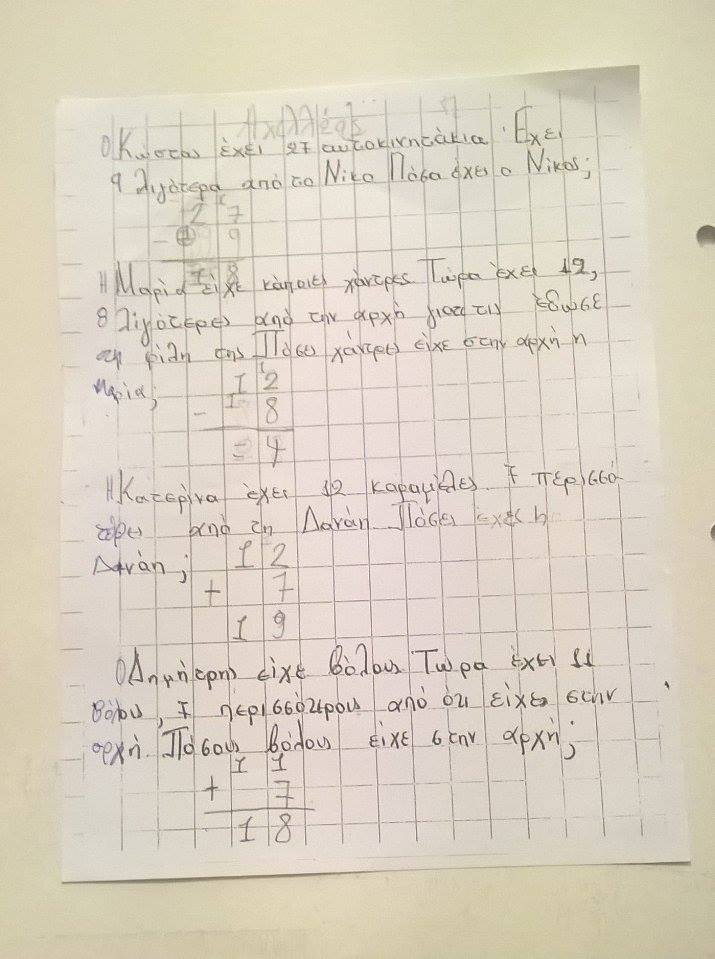 Αχιλλέας
Ο Κώστας έχει 27 αυτοκινητάκια. Έχει
9 λιγότερα από το Νίκο Πόσα έχει ο Νίκος;
27
- 9
18
Η Μαρία είχε κάποιες χάντρες Τώρα έχει 12,
8 λιγότερες από την αρχή γιατί τις έδωσε
στη φίλη της Πόσες χάντρες είχε στην αρχή η
Μαρία;
12
- 8
= 4
Η Κατερίνα έχει 12 καραμέλες 7 περισσό-
τερες από τη Δανάη Πόσες έχει η
Δανάη;
12
+ 7
19
Ο Δημήτρης είχε βόλους Τώρα έχει 11
βόλους, 7 περισσότερους από ότι είχε στην
αρχή. Πόσους βόλους είχε στην αρχή;
11
+ 7
18